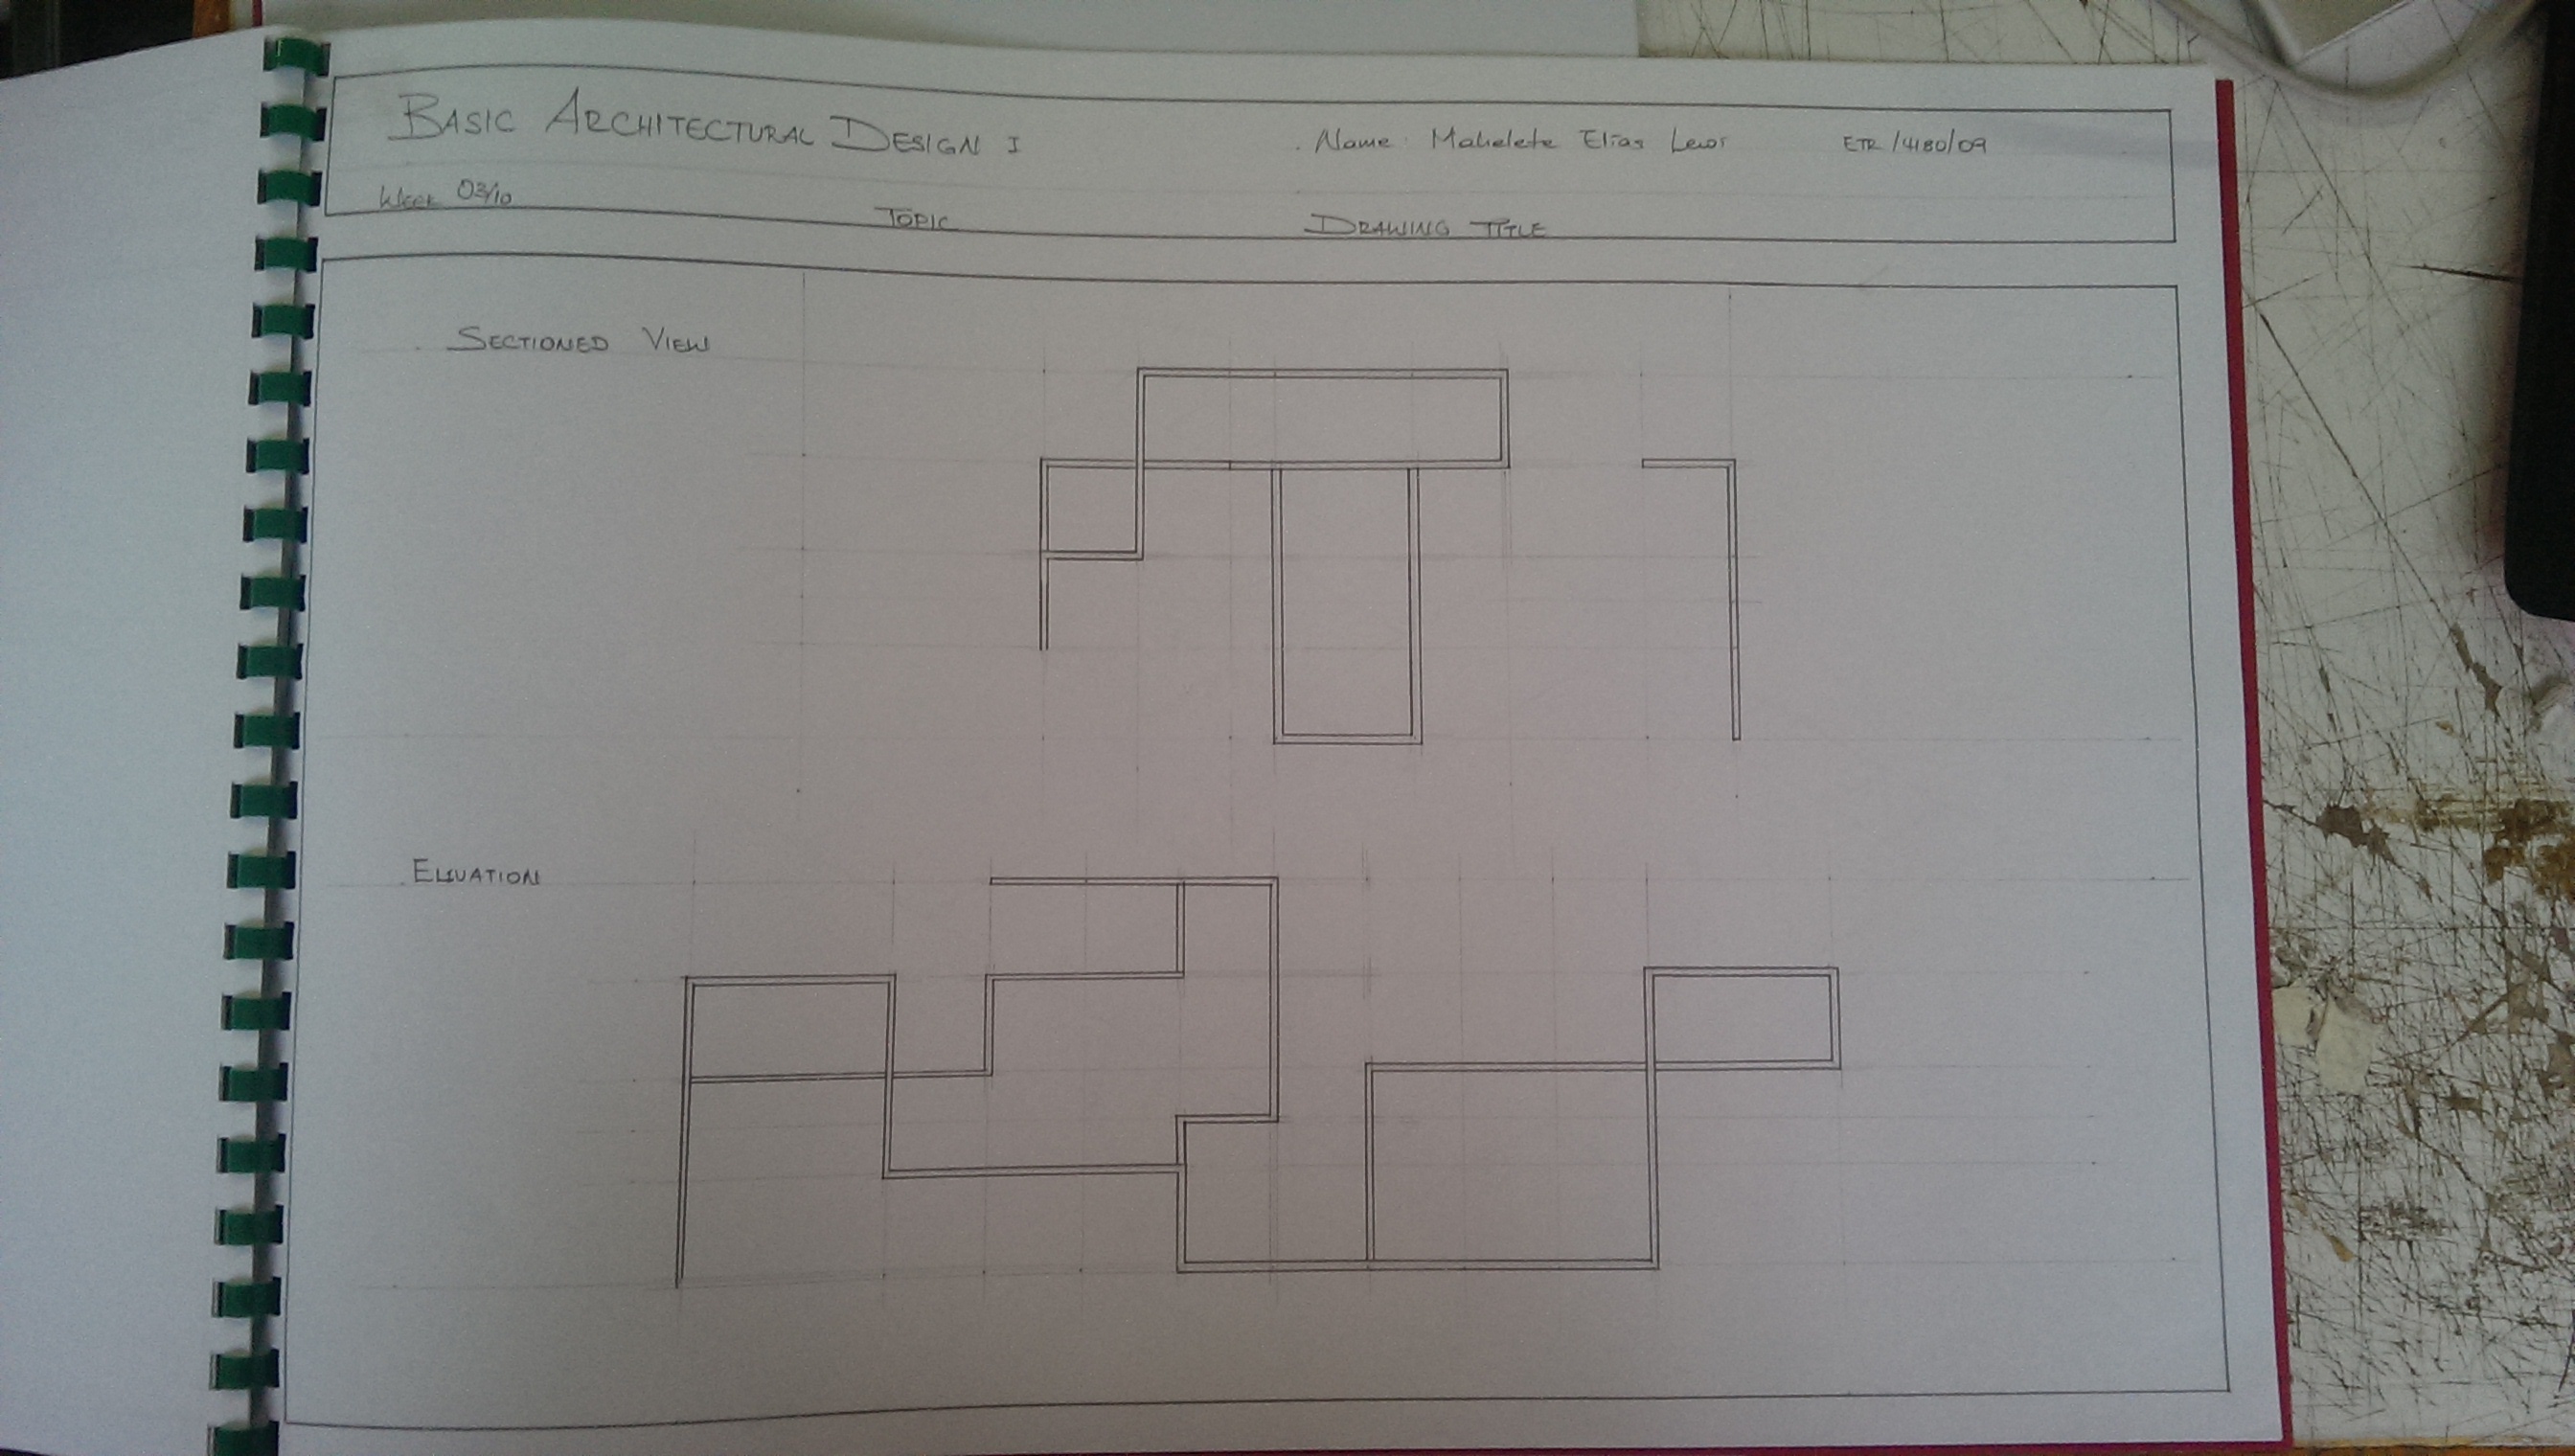 BASIC ARCHITECTURAL DESIGN I
Name: Mahelete Elias ETR/4180/09
Week 03/10 TOPIC DRAWING TITLE
SECTIONED VIEW
ELEVATION